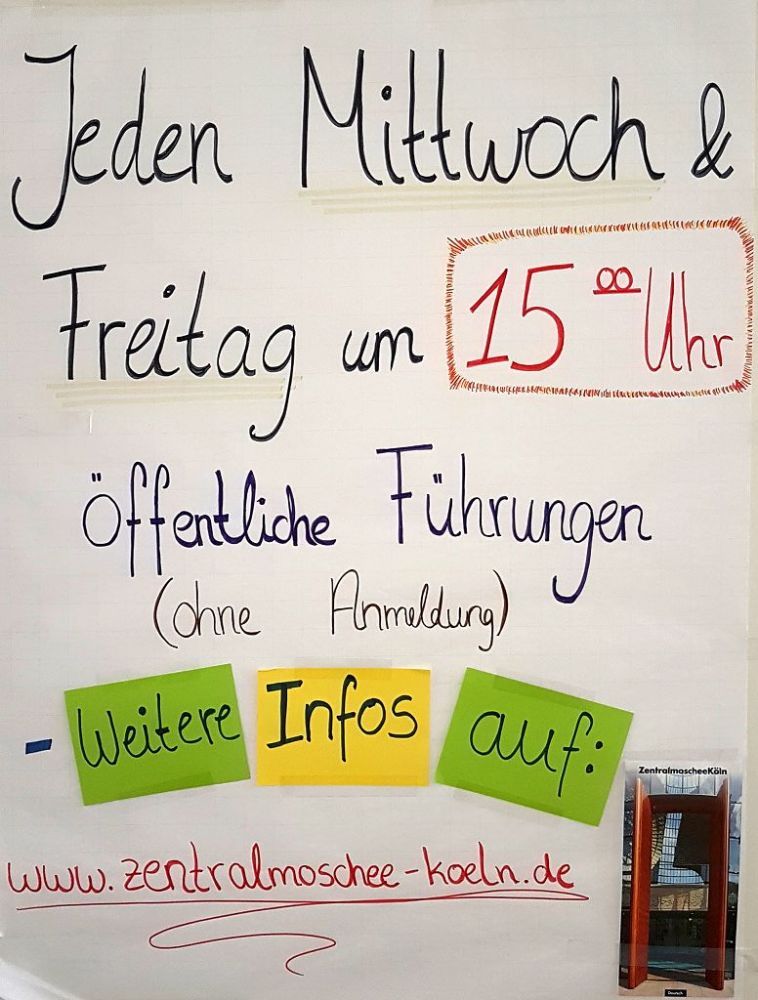 Jeden Mittwoch &
Freitag um 15⁰⁰ Uhr
Öffentliche Führungen
(ohne Anmeldung)
- Weitere Infos auf:
www.zentralmoschee-koeln.de
ZentralmoscheeKöln
Deutsch